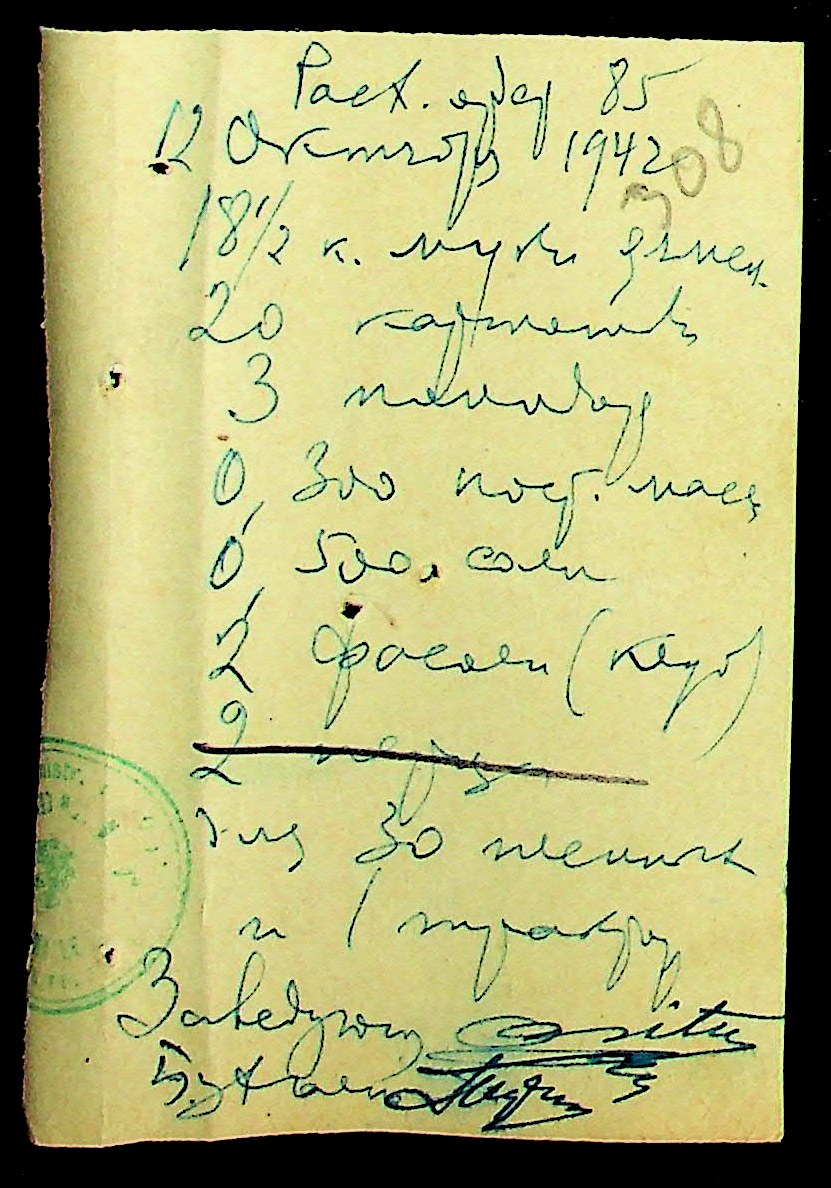 Расх. ордер 85
12 Октября 1942
308
18 1/2 к. муки ячмен.
20 картошки
3 помидор
0,300 пост. масл
0,500. соли
2 фасоли (
2 перца
для 30 пленных
и 1
Заведующ
Бухгал